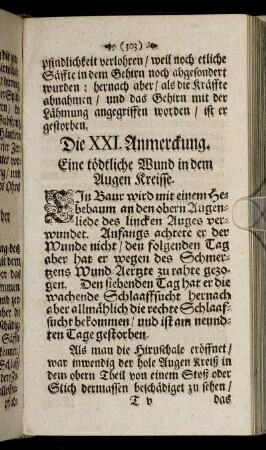 (303)
pfindlichkeit verlohren / weil noch etliche
Säffte in dem Gehirn noch abgesondert
wurden: hernach aber / als die Kräffte
abnahmen / und das Gehirn mit der
Lähmung angegriffen worden / ist er
gestorben.
Die XXI. Anmerckung.
Eine tödtliche Wund in dem
Augen Kreisse.
EIn Baur wird mit einem He-
bebaum an den obern Augen-
liede des lincken Auges ver-
wundet. Anfangs achtete er der
Wunde nicht / den folgenden Tag
aber hat er wegen des Schmer-
tzens Wund Aertzte zu rahte gezo-
gen. Den siebenden Tag hat er die
wachende Schlaaffsucht hernach
aber allmählich die rechte Schlaaf-
sucht bekommen / und ist am neund-
ten Tage gestorben.
Als man die Hirnschale eröffnet /
war inwendig der hole Augen Kreiß in
dem obern Theil von einem Stoß oder
Stich dermassen beschädiget zu sehen /
T v
das